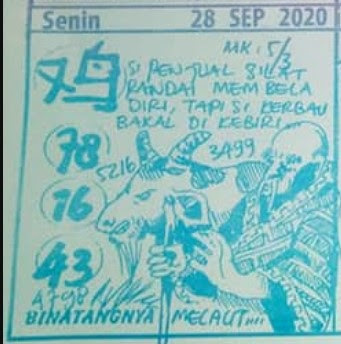 Senin 28 SEP 2020
MK: 5/3
鸡
SI PENJUAL SILAT
RANDAI MEMBELA
DIRI, TAPI SI KERBAU
BAKAL DI KEBIRI
78
5216
3499
16
43
A798
BINATANGNYA MELAUT....